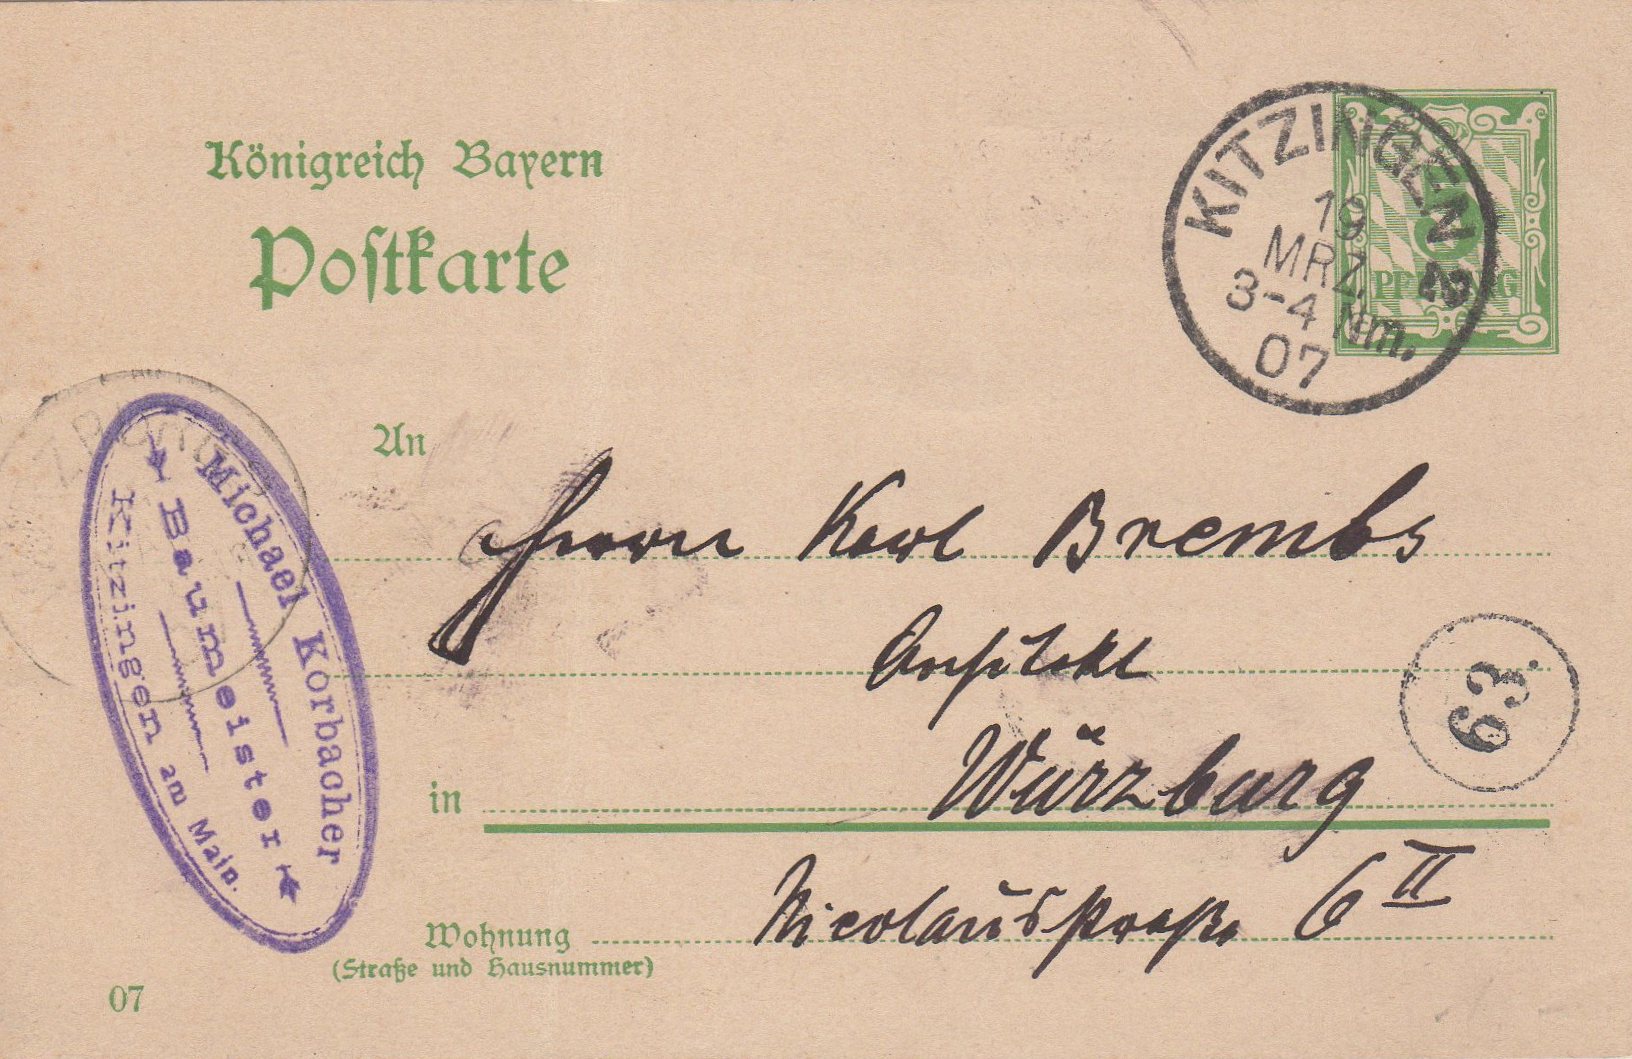 Königreich Bayern
Postkarte
KITZINGEN 2
19
MRZ.
3-4 Nm.
07
5
PFENNIG
An
Herrn Karl Brembs
Architekt
in Würzburg
Wohnung Nicolausstraße 6 II
(Straße und Hausnummer)
63.
Michael Korbacher
Baumeister
Kitzingen am Main.
07